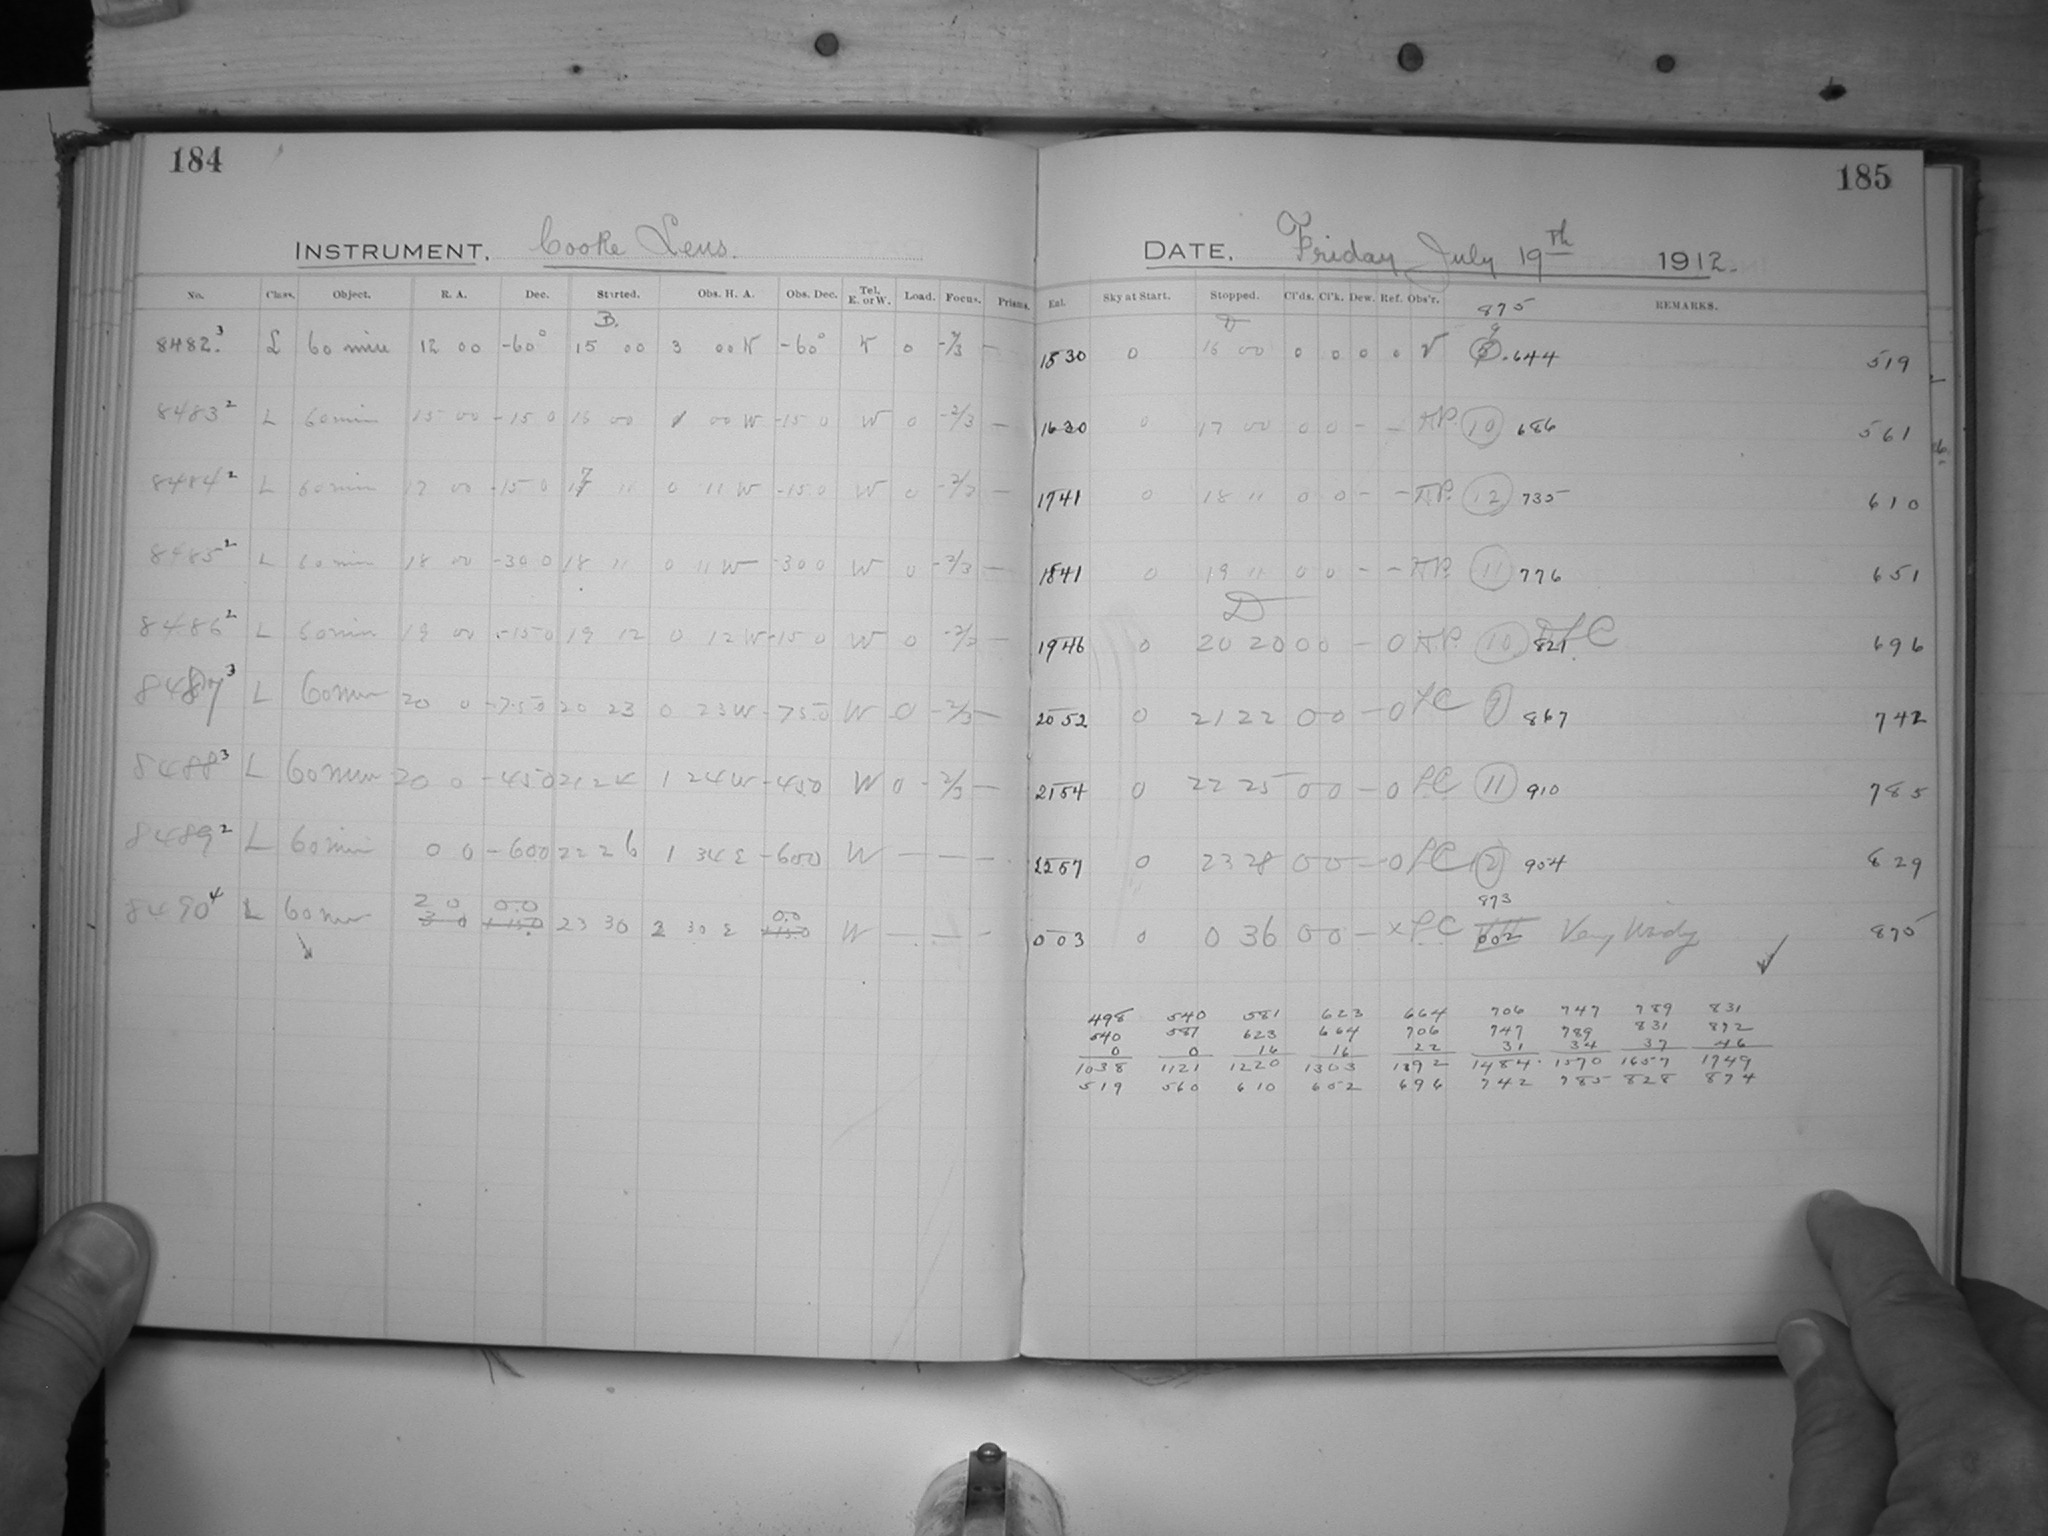 184
INSTRUMENT. Cooke Lens.
No. Class. Object. R. A. Dec. Started. Obs. H. A. Obs. Dec. Tel. E. or W. Load. Focus. Prisms.
B.
8482.3 L 60 min 12 00 -60° 15 00 3 00 W -60° W 0 -2/3 —
8483 2 L 60 min 15 00 -15 0 16 00 1 00 W -15 0 W 0 -2/3 —
8484 2 L 60 min 17 00 -15 0 17 11 0 11 W -15 0 W 0 -2/3 —
8485 2 L 60 min 18 00 -30 0 18 11 0 11 W -30 0 W 0 -2/3 —
8486 2 L 60 min 19 00 -15 0 19 12 0 12 W -15 0 W 0 -2/3 —
8487 3 L 60 min 20 0 -75 0 20 23 0 23 W -75 0 W 0 -2/3 —
8488 3 L 60 min 20 0 -45 0 21 24 1 24 W -45 0 W 0 -2/3 —
8489 2 L 60 min 0 0 -60 0 22 26 1 34 E -60 0 W — — —
2 0 0.0 0.0
8490 4 L 60 min 3 0 +15.0 23 30 2 30 E +15.0 W — — —
185
DATE. Friday July 19th 1912.
Exl. Sky at Start. Stopped. Cl'ds. Cl'k. Dew. Ref. Obs'r. REMARKS.
875
D 9
1530 0 16 00 0 0 0 0 V 5 .644 519
1630 0 17 00 0 0 - - 10 686 561
1741 0 18 11 0 0 - - 12 735 610
1841 0 19 11 0 0 - - 11 776 651
D
1946 0 20 20 0 0 - 0 10 821 696
2052 0 21 22 0 0 - 0 LC 9 867 742
2154 0 22 25 0 0 - 0 LC 11 910 785
2257 0 23 28 0 0 - 0 LC 12 904 829
873
003 0 0 36 0 0 - x LC 002 Very Windy 875
498 540 581 623 664 706 747 789 831
540 581 623 664 706 747 789 831 872
0 0 16 16 22 31 34 37 46
1038 1121 1220 1303 1392 1484 1570 1657 1749
519 560 610 652 696 742 785 828 874